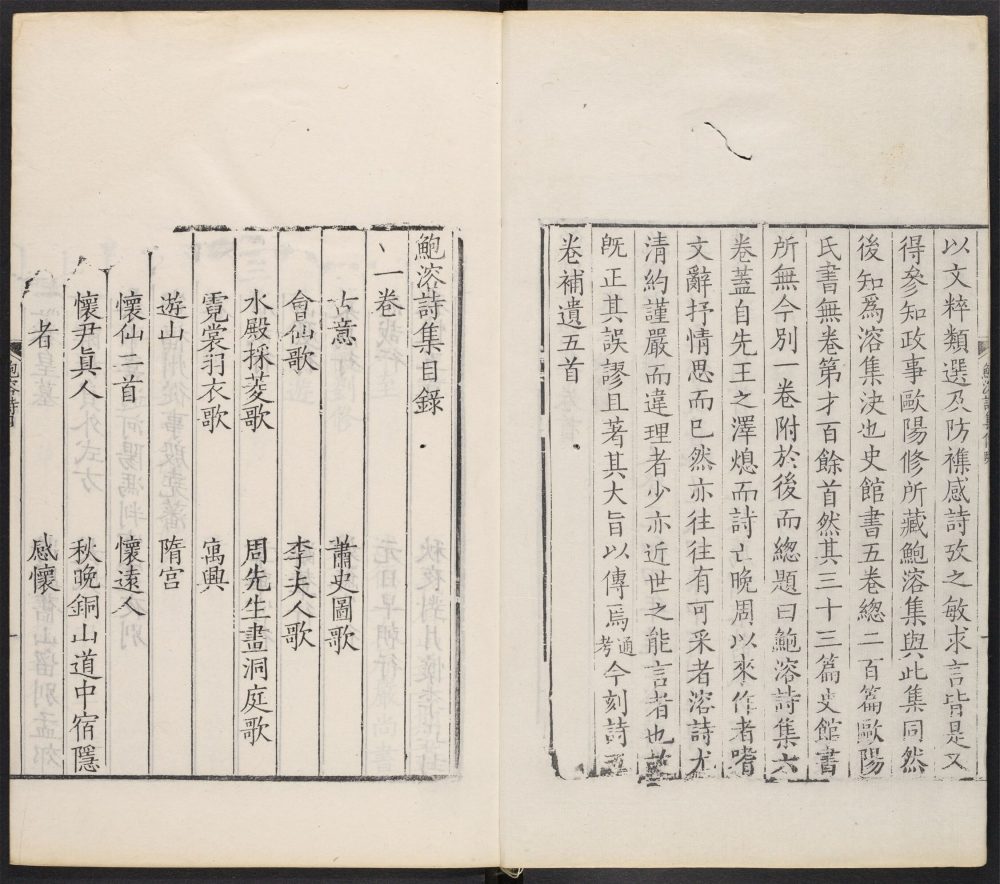 以文粹類選及防襍感詩攷之敏求言皆是又
得參知政事歐陽修所藏鮑溶集與此集同然
後知爲溶集決也史館書五卷總二百篇歐陽
氏書無卷第才百餘首然其三十三篇史館書
所無今別一卷附於後而總題曰鮑溶詩集六
卷蓋自先王之澤熄而詩亡晚周以來作者嗜
文辭抒情思而已然亦往往有可采者溶詩尤
清約謹嚴而違理者少亦近世之能言者也故
旣正其誤謬且著其大旨以傳焉通考今刻詩五
卷補遺五首
鮑溶詩集目錄
一卷
古意 蕭史圖歌
會仙歌 李夫人歌
水殿採菱歌 周先生畫洞庭歌
霓裳羽衣歌 寓興
遊山 隋宮
懷仙二首 懷遠人
懷尹眞人 秋晚銅山道中宿隱
者 感懷
鮑溶詩目